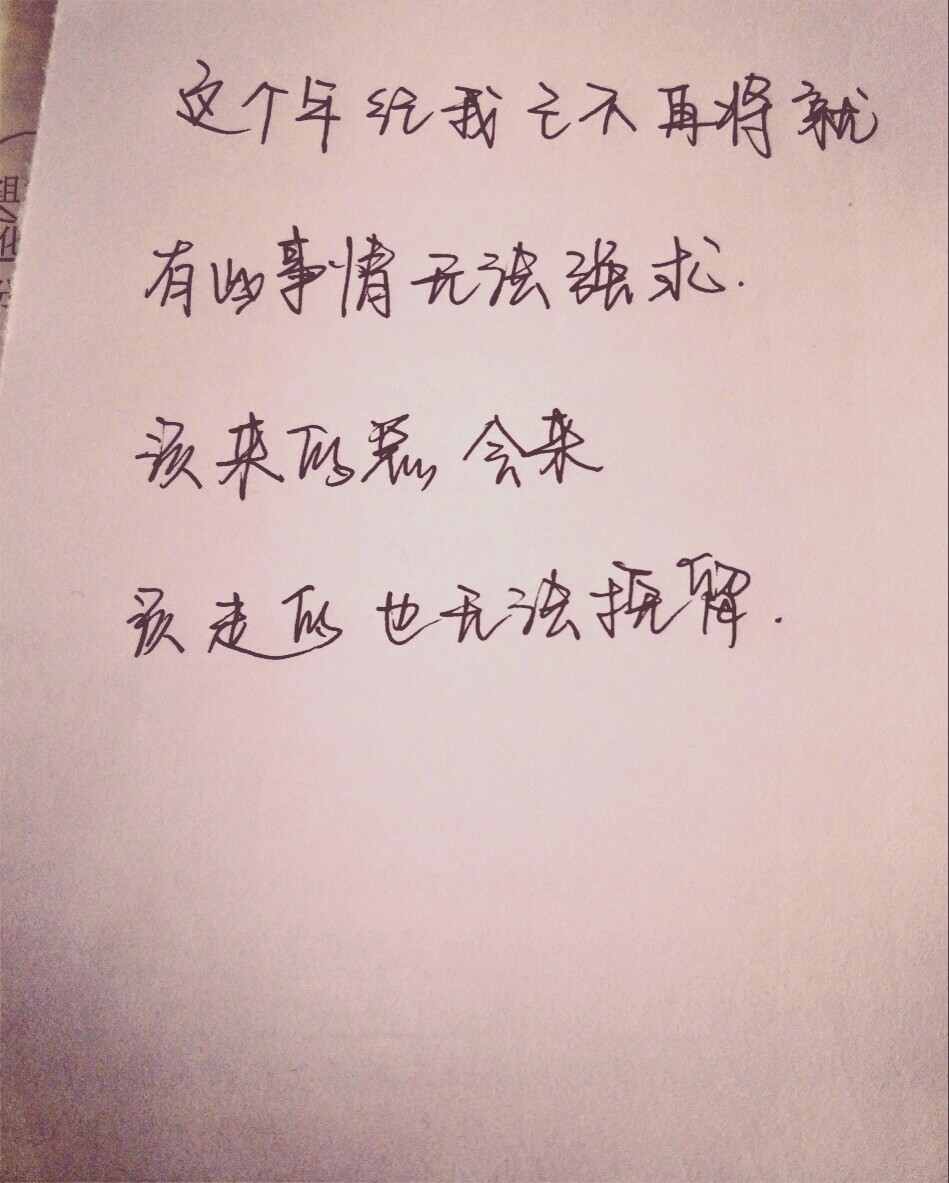 这个年纪我已不再将就
有些事情无法强求.
该来的总会来
该走的也无法挽留.
组
化